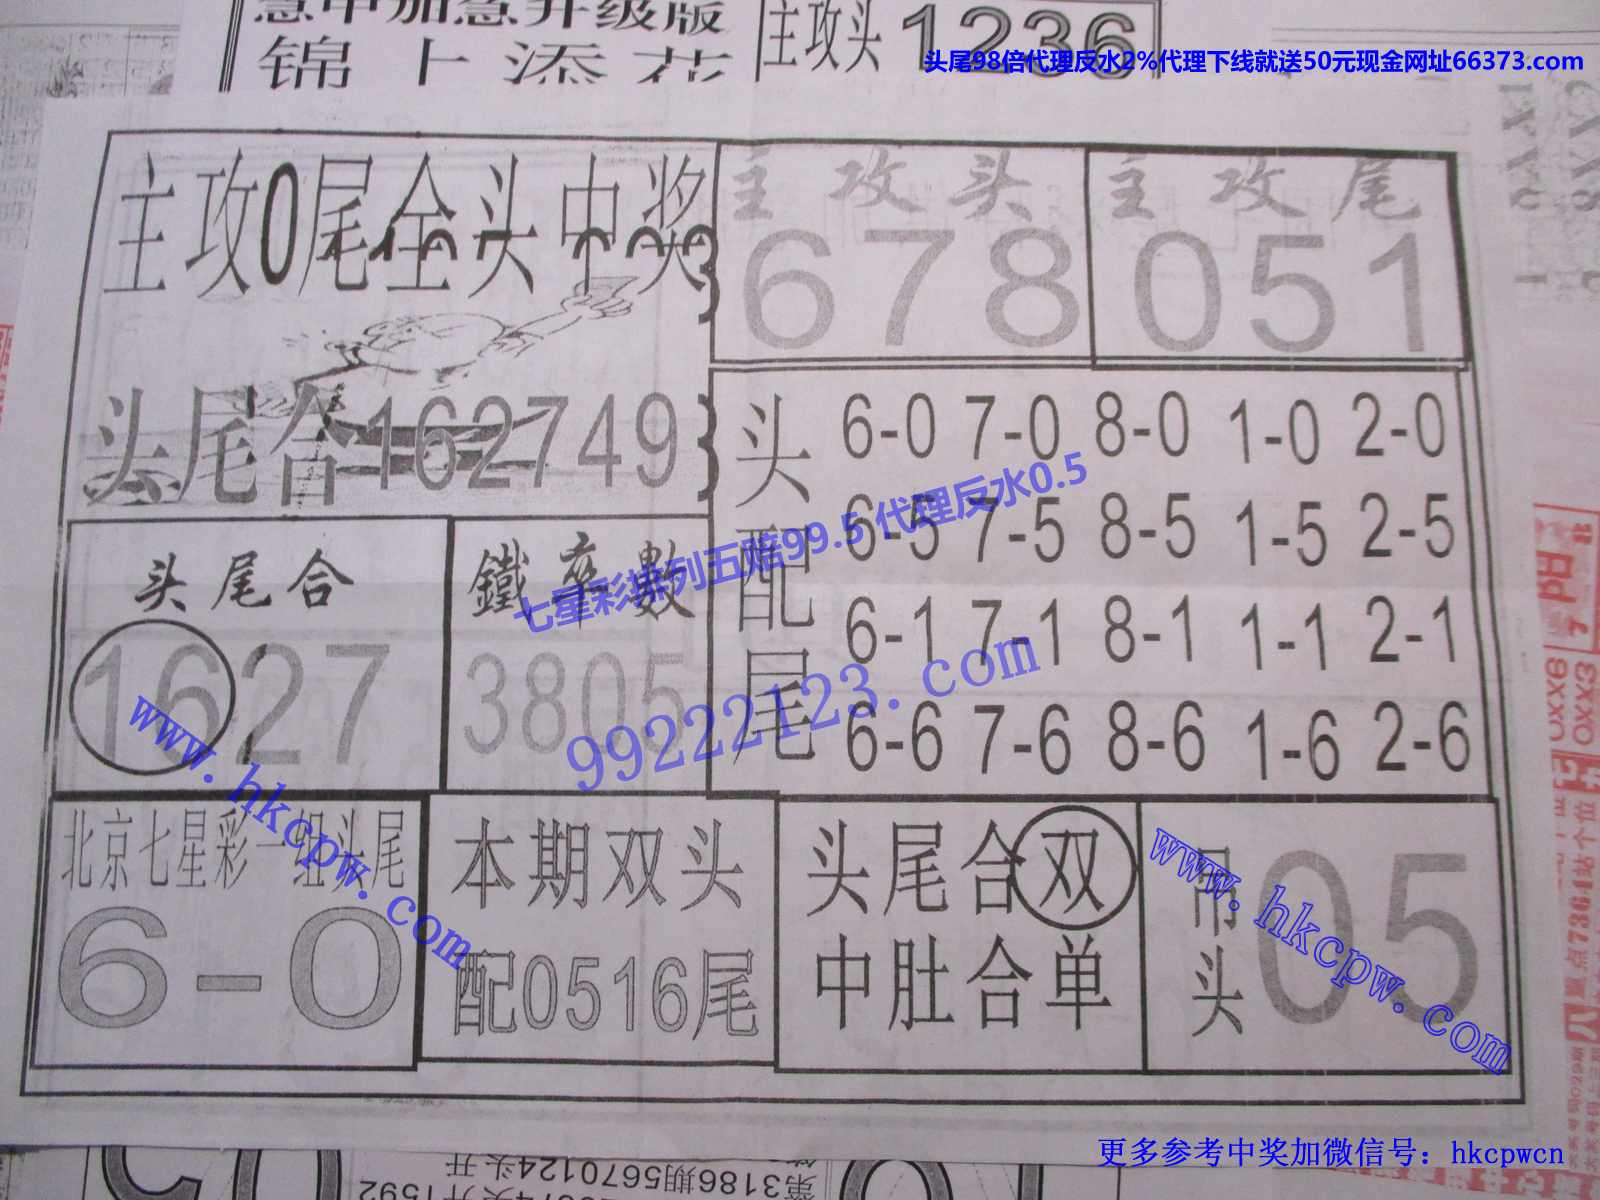 锦上添花
主攻头1236
头尾98倍代理反水2%代理下线就送50元现金网址66373.com
主攻0尾全头中奖
主攻头
678
主攻尾
051
头尾合162749
头配尾
6-0 7-0 8-0 1-0 2-0
6-5 7-5 8-5 1-5 2-5
6-1 7-1 8-1 1-1 2-1
6-6 7-6 8-6 1-6 2-6
七星彩排列五赔99.5 代理反水0.5
99222123.com
头尾合
1627
鐵卒數
3805
www.hkcpw.com
北京七星彩一组头尾
6-0
本期双头
配0516尾
头尾合双
中肚合单
吊头
05
www.hkcpw.com
更多参考中奖加微信号：hkcpwcn
第3186期5670124头开